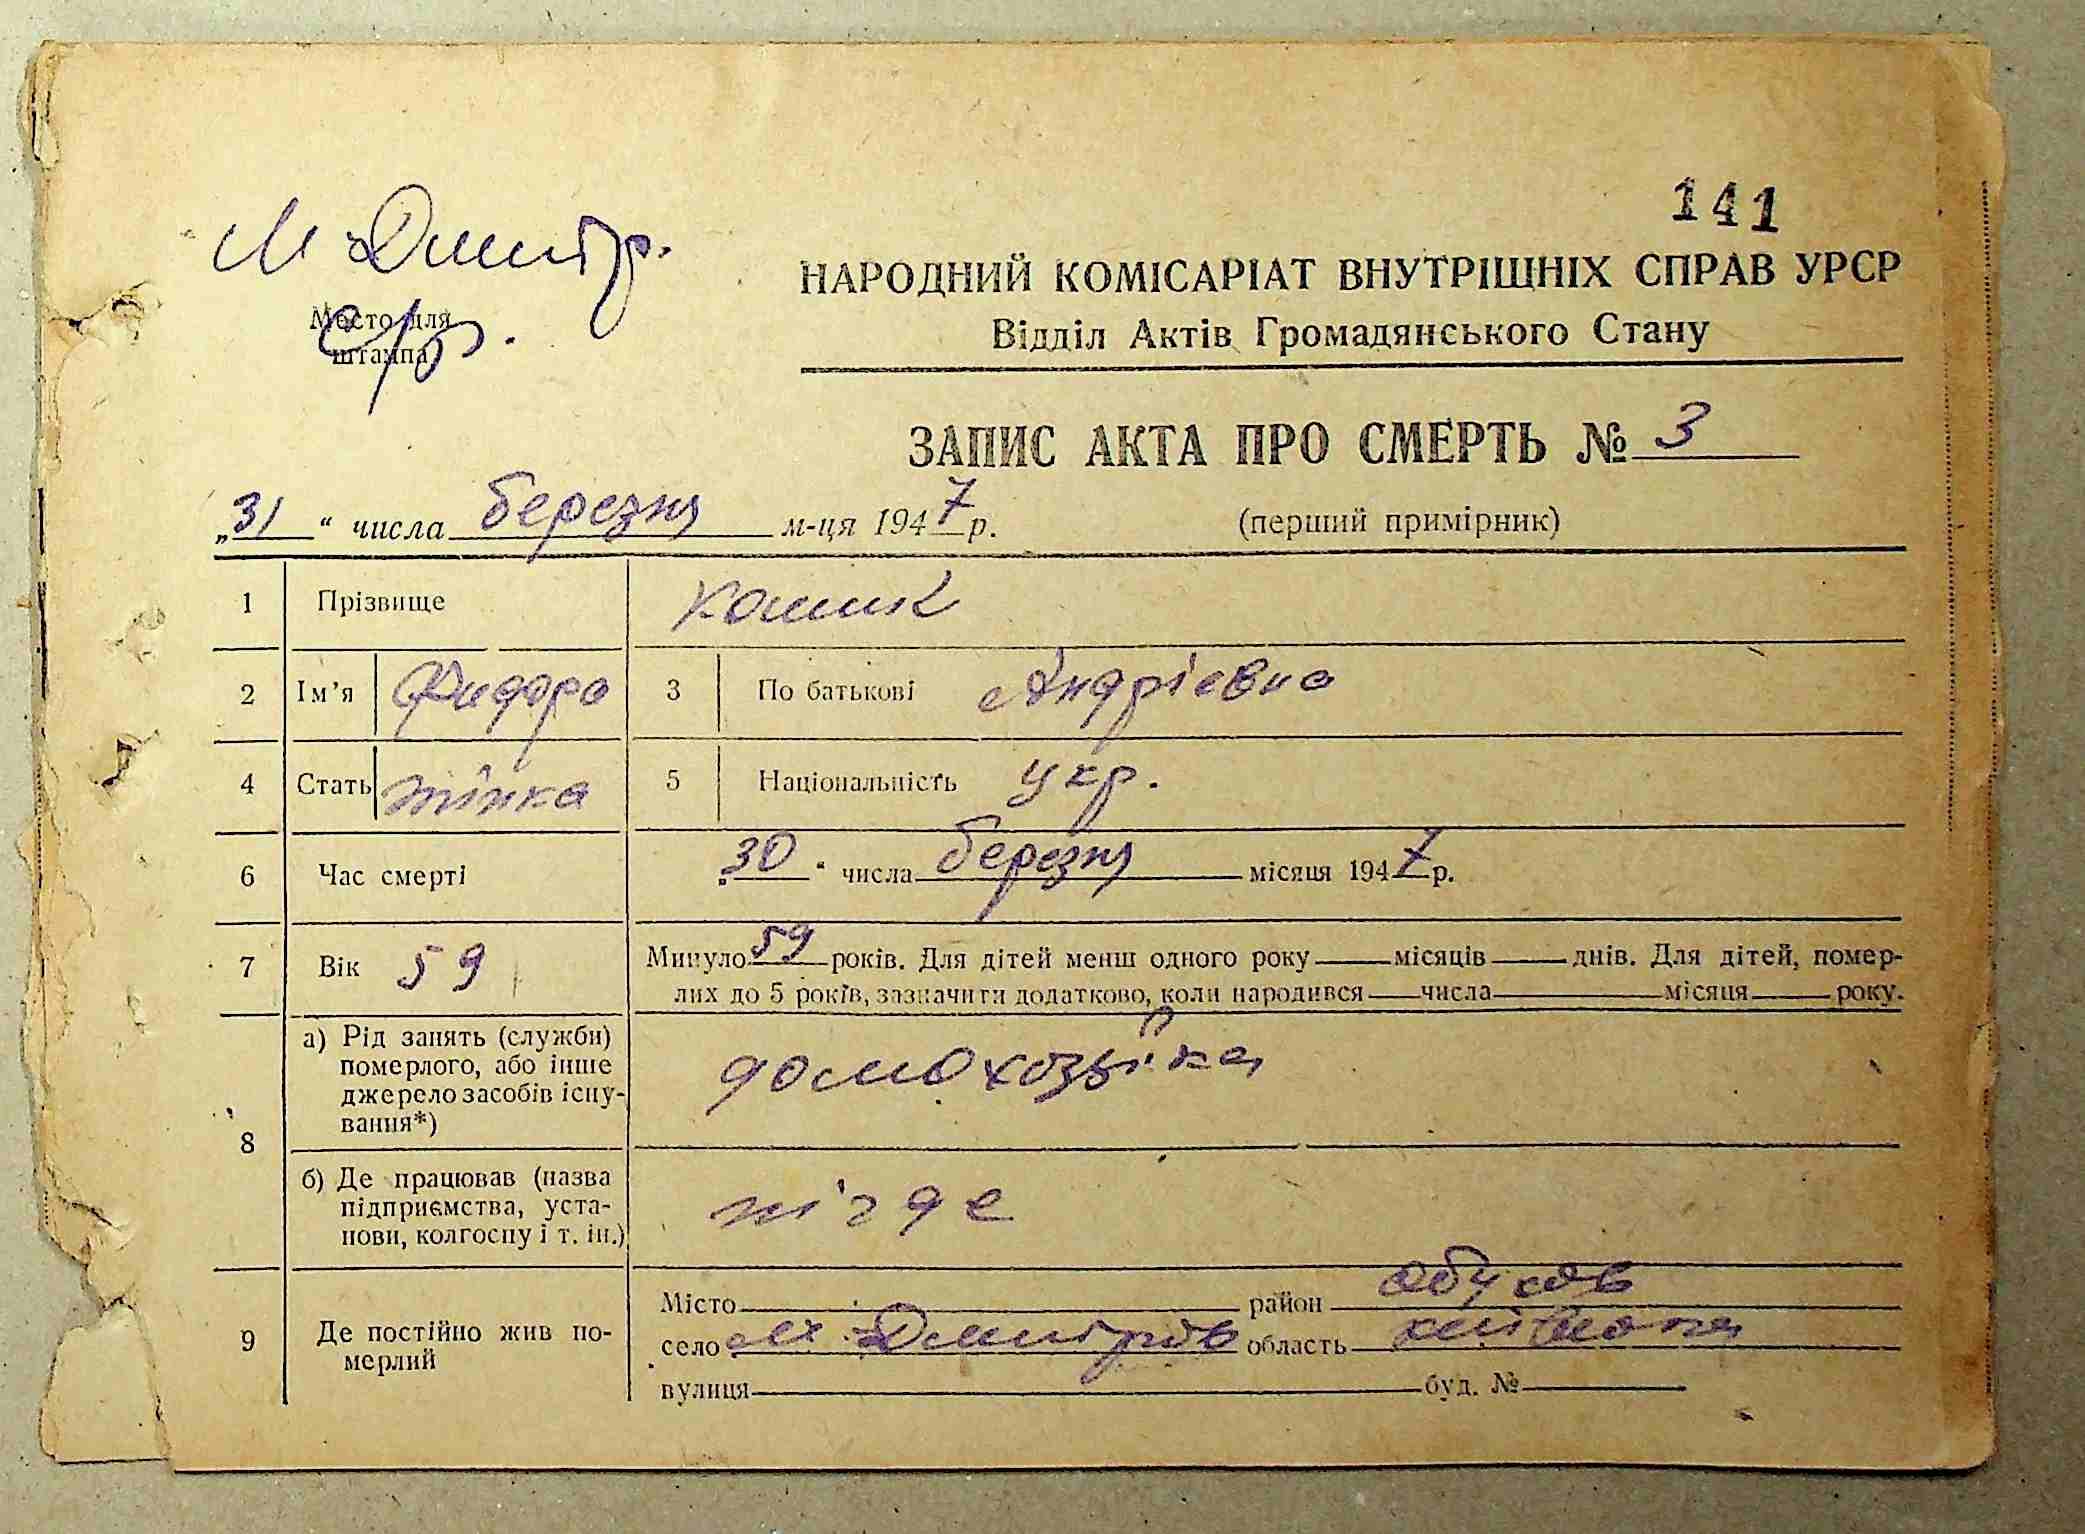 141
М Дмитр.
Место для
штампа
с/р.
НАРОДНИЙ КОМІСАРІАТ ВНУТРІШНІХ СПРАВ УРСР
Відділ Актів Громадянського Стану
ЗАПИС АКТА ПРО СМЕРТЬ № 3
„31“ числа березня м-ця 1947 р.
(перший примірник)
1 Прізвище Кошик
2 Ім’я Фидора 3 По батькові Андріевна
4 Стать жінка 5 Національність укр.
6 Час смерті „30“ числа березня місяця 1947 р.
7 Вік 59 Минуло 59 років. Для дітей менш одного року місяців днів. Для дітей, помер-
лих до 5 років, зазначити додатково, коли народився числа місяця року.
8
а) Рід занять (служби)
померлого, або інше
джерело засобів існу-
вання*)
домохозяйка
б) Де працював (назва
підприємства, уста-
нови, колгоспу і т. ін.)
нігде
9 Де постійно жив по-
мерлий
Місто район Обухов
село М. Дмитров область
вулиця буд. №